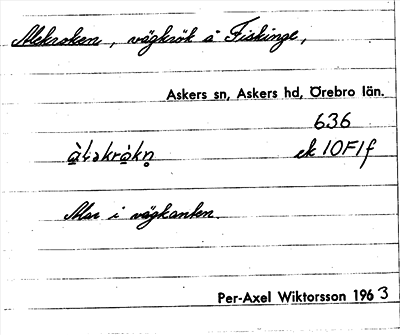 Alekroken, vägkrök å Fiskinge,
Askers sn, Askers hd, Örebro län.
636
àlǝkròkn̥ ek 10F1f
Alar i vägkanten
Per-Axel Wiktorsson 1963